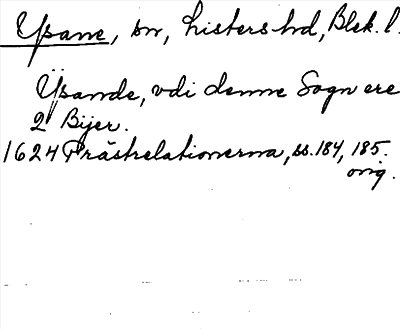 Ysane, sn, Listers hd, Blek. l.
Ÿsande, vdi denne Sogn ere
2 Bÿer.
1624 Prästrelationerna, ss. 184, 185.
orig.